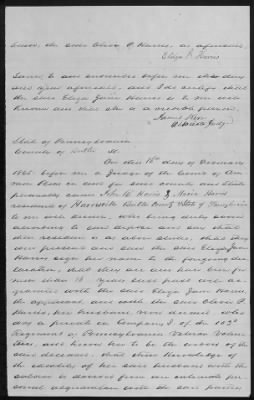 before, the said Oliver P. Harris, as aforesaid,
Eliza J. Harris
Sworn to and subscribed before me this day
and year aforesaid, and I do certify that
the said Eliza Jane Harris is to me well
known and that she is a credible person.
James Kerr
Associate Judge
State of Pennsylvania
County of Butler Ss.
On this 16th day of
1865 before me a Judge of the Court of Com-
mon Pleas in and for said county and State
personally came John and
residents of Harrisville Butler County State of Pennsylvania
to me well known, who being duly sworn
according to law depose and say that
their residence is as above stated, that they
were present and saw the said Eliza Jane
Harris sign her name to the foregoing dec-
laration, that they are and have been for
more than years last past well ac-
quainted with the said Eliza Jane Harris
the applicant and with the said Oliver P.
Harris, her husband now deceased, who
was a private in Company of the
Regiment of Pennsylvania Veteran Volun-
teers, and knows her to be the widow of the
said deceased. That their knowledge of
the identity of her said husband with the
soldier is derived from an intimate per-
sonal acquaintance with the said parties